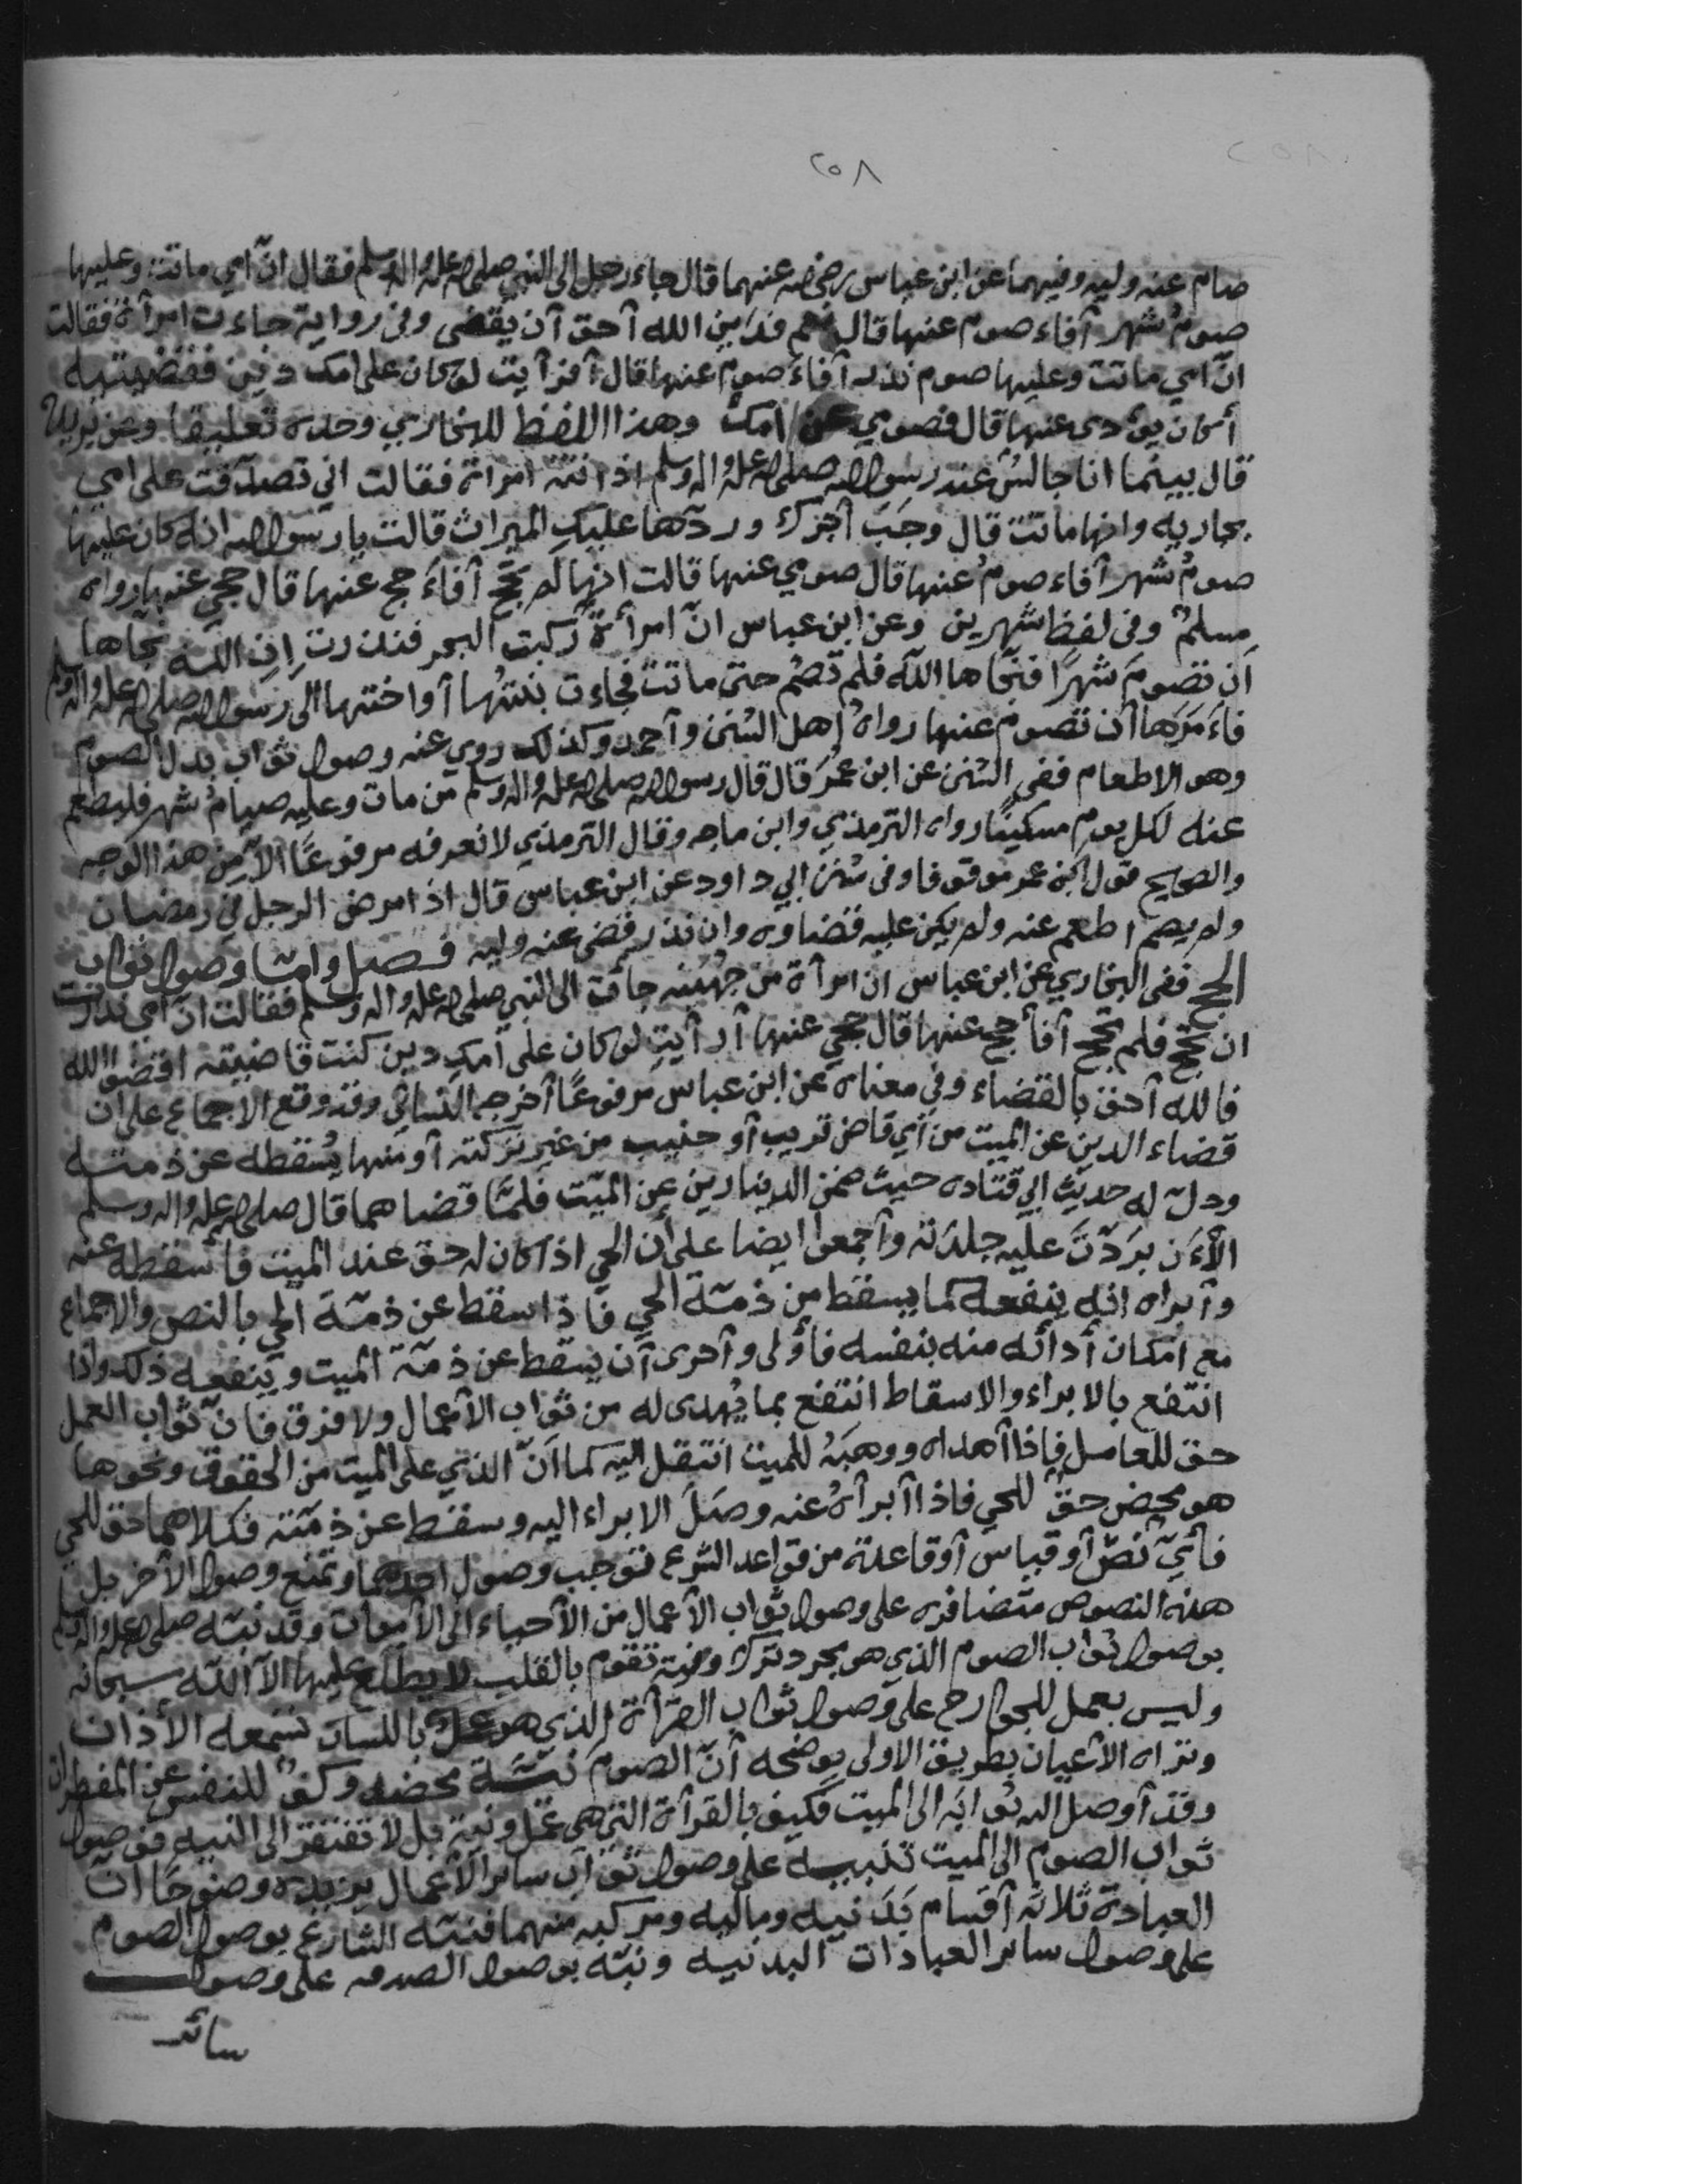 ٢٥٨
صام عنه وليه وفيهما عن ابن عباس رضي الله عنهما قال جاء رجل الى النبي صلى الله عليه واله وسلم فقال انّ امي ماتت وعليها
صومُ شهر آفاء صوم عنها قال نعم فدَين الله آحق آن يقضى وفي رواية جاءت امرآة فقالت
انّ امي ماتت وعليها صوم نذر آفاءَ صوم عنها قال آفرآيت لو كان على امك دين فقضيتيه
أكان يؤدى عنها قال فصومي عن امك وهذا اللفظ للبخاري وحده تعليقا وعن بريده
قال بينما انا جالسٌ عند رسول الله صلى الله عليه واله وسلم اذ اتته امراة فقالت اني تصدّقت على امي
بجاريه وانها ماتت قال وجَبَ آجرك وردّها عليكِ الميراث قالت يا رسول الله انه كان عليها
صومُ شهر آفاء صومُ عنها قال صومي عنها قالت انها لم تحج آفاءَ حج عنها قال حجي عنها رواه
مسلمٌ وفي لفظ شهرين وعن ابن عباس انّ امرأةً ركبت البحر فنذرت اِنِ اللّه نجاها
اَن تصومَ شهرًا فنجّاها اللّه فلم تصُم حتى ماتت فجاءت بنتُها آو اختها الى رسول الله صلى الله عليه واله وسلم
فاءَمَرَها آن تصوم عنها رواهُ اهل السُنن وآحمد وكذلك روي عنه وصول ثواب بدل الصوم
وهو الاطعام ففي السُنن عن ابن عمرَ قال قال رسول الله صلى الله عليه واله وسلم من مات وعليه صيامُ شهر فليطعم
عنه لكل يوم مسكينًا رواه الترمذي وابن ماجه وقال الترمذي لا نعرفه مرفوعًا الّا من هذا الوجه
والصحيح قول ابن عمر موقوفا وفي سُنن ابي داود عن ابن عباس قال اذا مرض الرجل في رمضان
ولم يصم اطعم عنه ولم يكن عليه قضاوه وان نذر قضى عنه وليه فصل وامّا وصول ثواب
الحج ففي البخاري عن ابن عباس ان امرآة من جُهينه جآت الى النبي صلى الله عليه واله وسلم فقالت انّ امي نذرت
ان تحج فلم تحج آفأحج عنها قال حجي عنها آرآيتِ لو كان على امكِ دين كنت قاضيته اقضوا الله
فالله آحق بالقضاء وفي معناه عن ابن عباس مرفوعًا آخرجه النسائي وقد وقع الاجماع على ان
قضاء الدين عن الميت من آي قاض قريب آو جنيب من غير تركته آو منها يُسقطه عن ذمته
ودلّ له حديث ابي قتاده حيث ضمن الدينارين عن الميّت فلمّا قضاهما قال صلى الله عليه واله وسلم
الآءَن بَرَدَتَ عليه جلدَته وآجمعوا ايضا على أن الحي اذا كان له حق عند الميت فآسقطه عنه
وآبراه انه ينفعه كما يسقط من ذمّة الحي فاذا سقط عن ذمّة الحي بالنص والاجماع
مع امكان أدائه منه بنفسه فآولى وآحرى آن يسقط عن ذمّة الميت وينفعه ذلك واذا
انتفع بالابراء والاسقاط انتفع بما يُهدى له من ثواب الأعمال ولا فرق فانّ ثواب العمل
حق للعامل فاذا آهداه ووهبَهُ للميت انتقل اليه كما اَنّ الذي على الميت من الحقوق ونحوها
هو محض حقٌ للحي فاذا آبرآهُ عنه وصَلَ الابراء اليه وسقط عن ذمّته فكلاهما حق للحي
فأيّ نصّ آو قياس آو قاعدة من قواعد الشرع توجب وصول احدهما وتمنع وصول الأخر بل
هذه النصوص متضافره على وصول ثواب الأعمال من الأحياء الى الأموات وقد نبّه صلى الله عليه واله وسلم
بوصول ثواب الصوم الذي هو مجرد ترك ونية تقوم بالقلب لا يطلع عليها الّا اللّه سبحانه
وليس بعمل للجوارح على وصول ثواب القرآة الذي هو عمل باللسان تسمعه الأذان
وتراه الأعيان بطريق الاولى يوضحه أنّ الصوم نيّة محضه وكفٌ للنفس عن المفطرات
وقد آوصل الله ثوابَه الى الميت فكيف بالقرآة التي هي عمل ونية بل لا تفتقر الى النيه فوصول
ثواب الصوم الى الميت تنبيه على وصول ثواب سائر الآعمال يزيده وضوحًا انّ
العبادة ثلاثه آقسام بَدَنيه وماليه ومركبه منهما فنبّه الشارع بوصول الصوم
على وصول سائر العبادات البدنيه ونبّه بوصول الصدقه على وصول
سائر